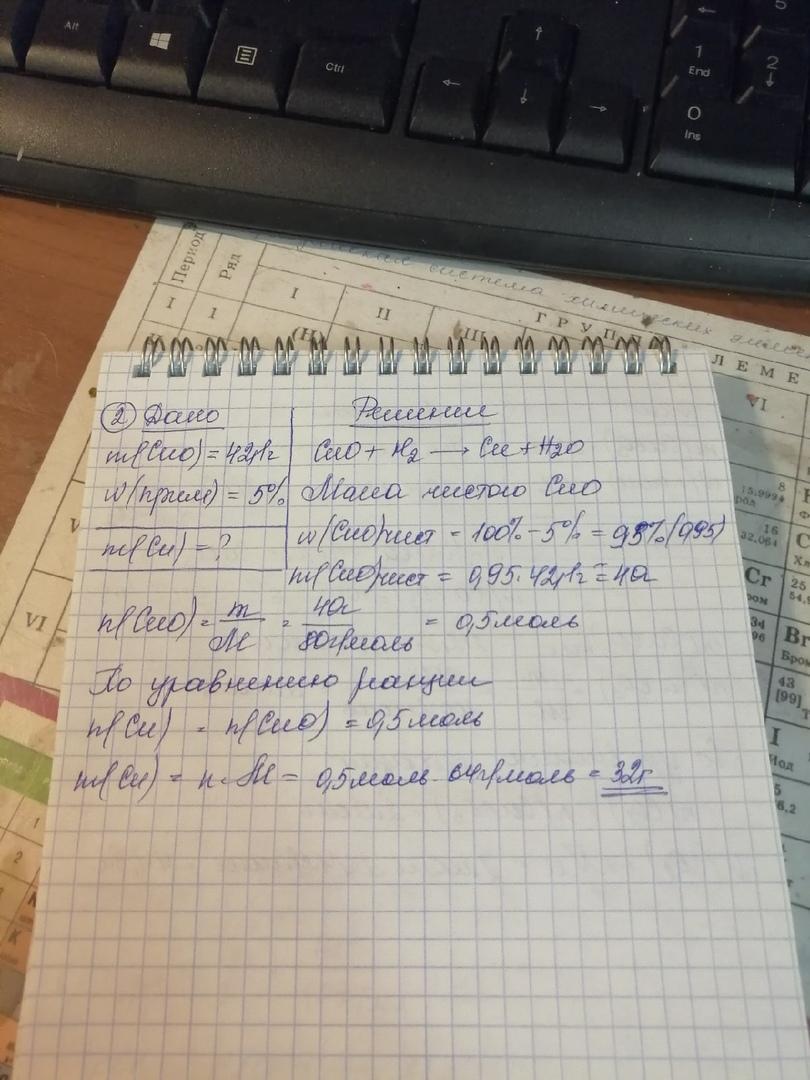 Alt
Ctrl
←
↑
↓
→
1
End
2
↓
0
Ins
5
Период
Ряд
I
1
I
II
III
ГРУПП
ЛЕМЕ
VI
система химических
(H)
② Дано
Решение
m(CuO) = 42,1г
CuO + H2 → Cu + H2O
w(прим) = 5%
Масса чистого CuO
m(Cu) = ?
w(CuO)чист = 100% - 5% = 95% (0,95)
m(CuO)чист = 0,95 · 42,1г = 40г
n(CuO) = m/M = 40г/80г/моль = 0,5 моль
По уравнению реакции
n(Cu) = n(CuO) = 0,5 моль
m(Cu) = n · M = 0,5 моль · 64г/моль = 32г
8
15,9994
16
32,064
Cr
ром
25
54,9
Br
Бром
43
[99]
I
Иод
VI
V
1
2
2
K